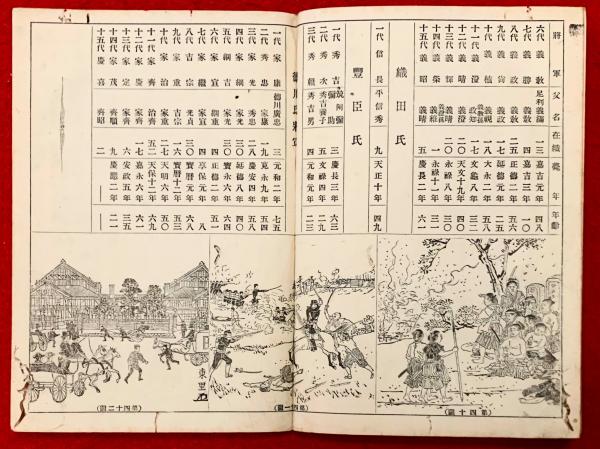 將軍 父名 在職 薨年 年齡
六代 義教 足利義滿 一三 嘉吉元年 四八
七代 義勝 義教 嘉吉三年 一〇
八代 義政 義教 二五 五六
九代 義尚 義政 一七 延德元年 二五
十代 義稙 義視 一七 大永三年 五八
十一代 義澄 政知 文龜 三二
十二代 義晴 義澄 天文十九年 四〇
十三代 義輝 義晴 二〇 永祿八年 三〇
十四代 義榮 義維 一 永祿十一年 三一
十五代 義昭 義晴 五 慶長二年 六一
織田氏
一代 信長 平信秀 九 天正十年 四九
豐臣氏
一代 秀吉 筑阿彌 彌助 三 慶長三年 六三
二代 秀次 秀吉養子 五 文祿四年 二九
三代 秀賴 秀吉男 四 元和元年 二三
德川氏
一代 家康 德川廣忠 三 元和二年 七五
二代 秀忠 家康 一九 寬永九年 五四
三代 家光 秀忠 二八 慶安四年 四八
四代 家綱 家光 三〇 延寶八年 四〇
五代 綱吉 家光 三〇 寶永六年 六四
六代 家宣 綱重 四 正德二年 五一
七代 家繼 家宣 四 享保元年 八
八代 吉宗 光貞 三〇 寶曆元年 六八
九代 家重 吉宗 寶曆十一年 五一
十代 家治 家重 二七 天明六年 五〇
十一代 家齊 治濟 五二 天保十二年 六九
十二代 家慶 家齊 一七 嘉永六年 六一
十三代 家定 家慶 六 安政五年 三五
十四代 家茂 齊順 九 慶應二年 二一
十五代 慶喜 齊昭 二
(圖十四第)
(圖一十四第)
東里
(圖二十四第)